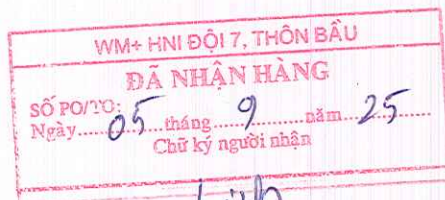 WM+ HNI ĐỘI 7, THÔN BẦU
ĐÃ NHẬN HÀNG
SỐ PO/TO:
Ngày.....05.....tháng.....9.....năm.....25.....
Chữ ký người nhận